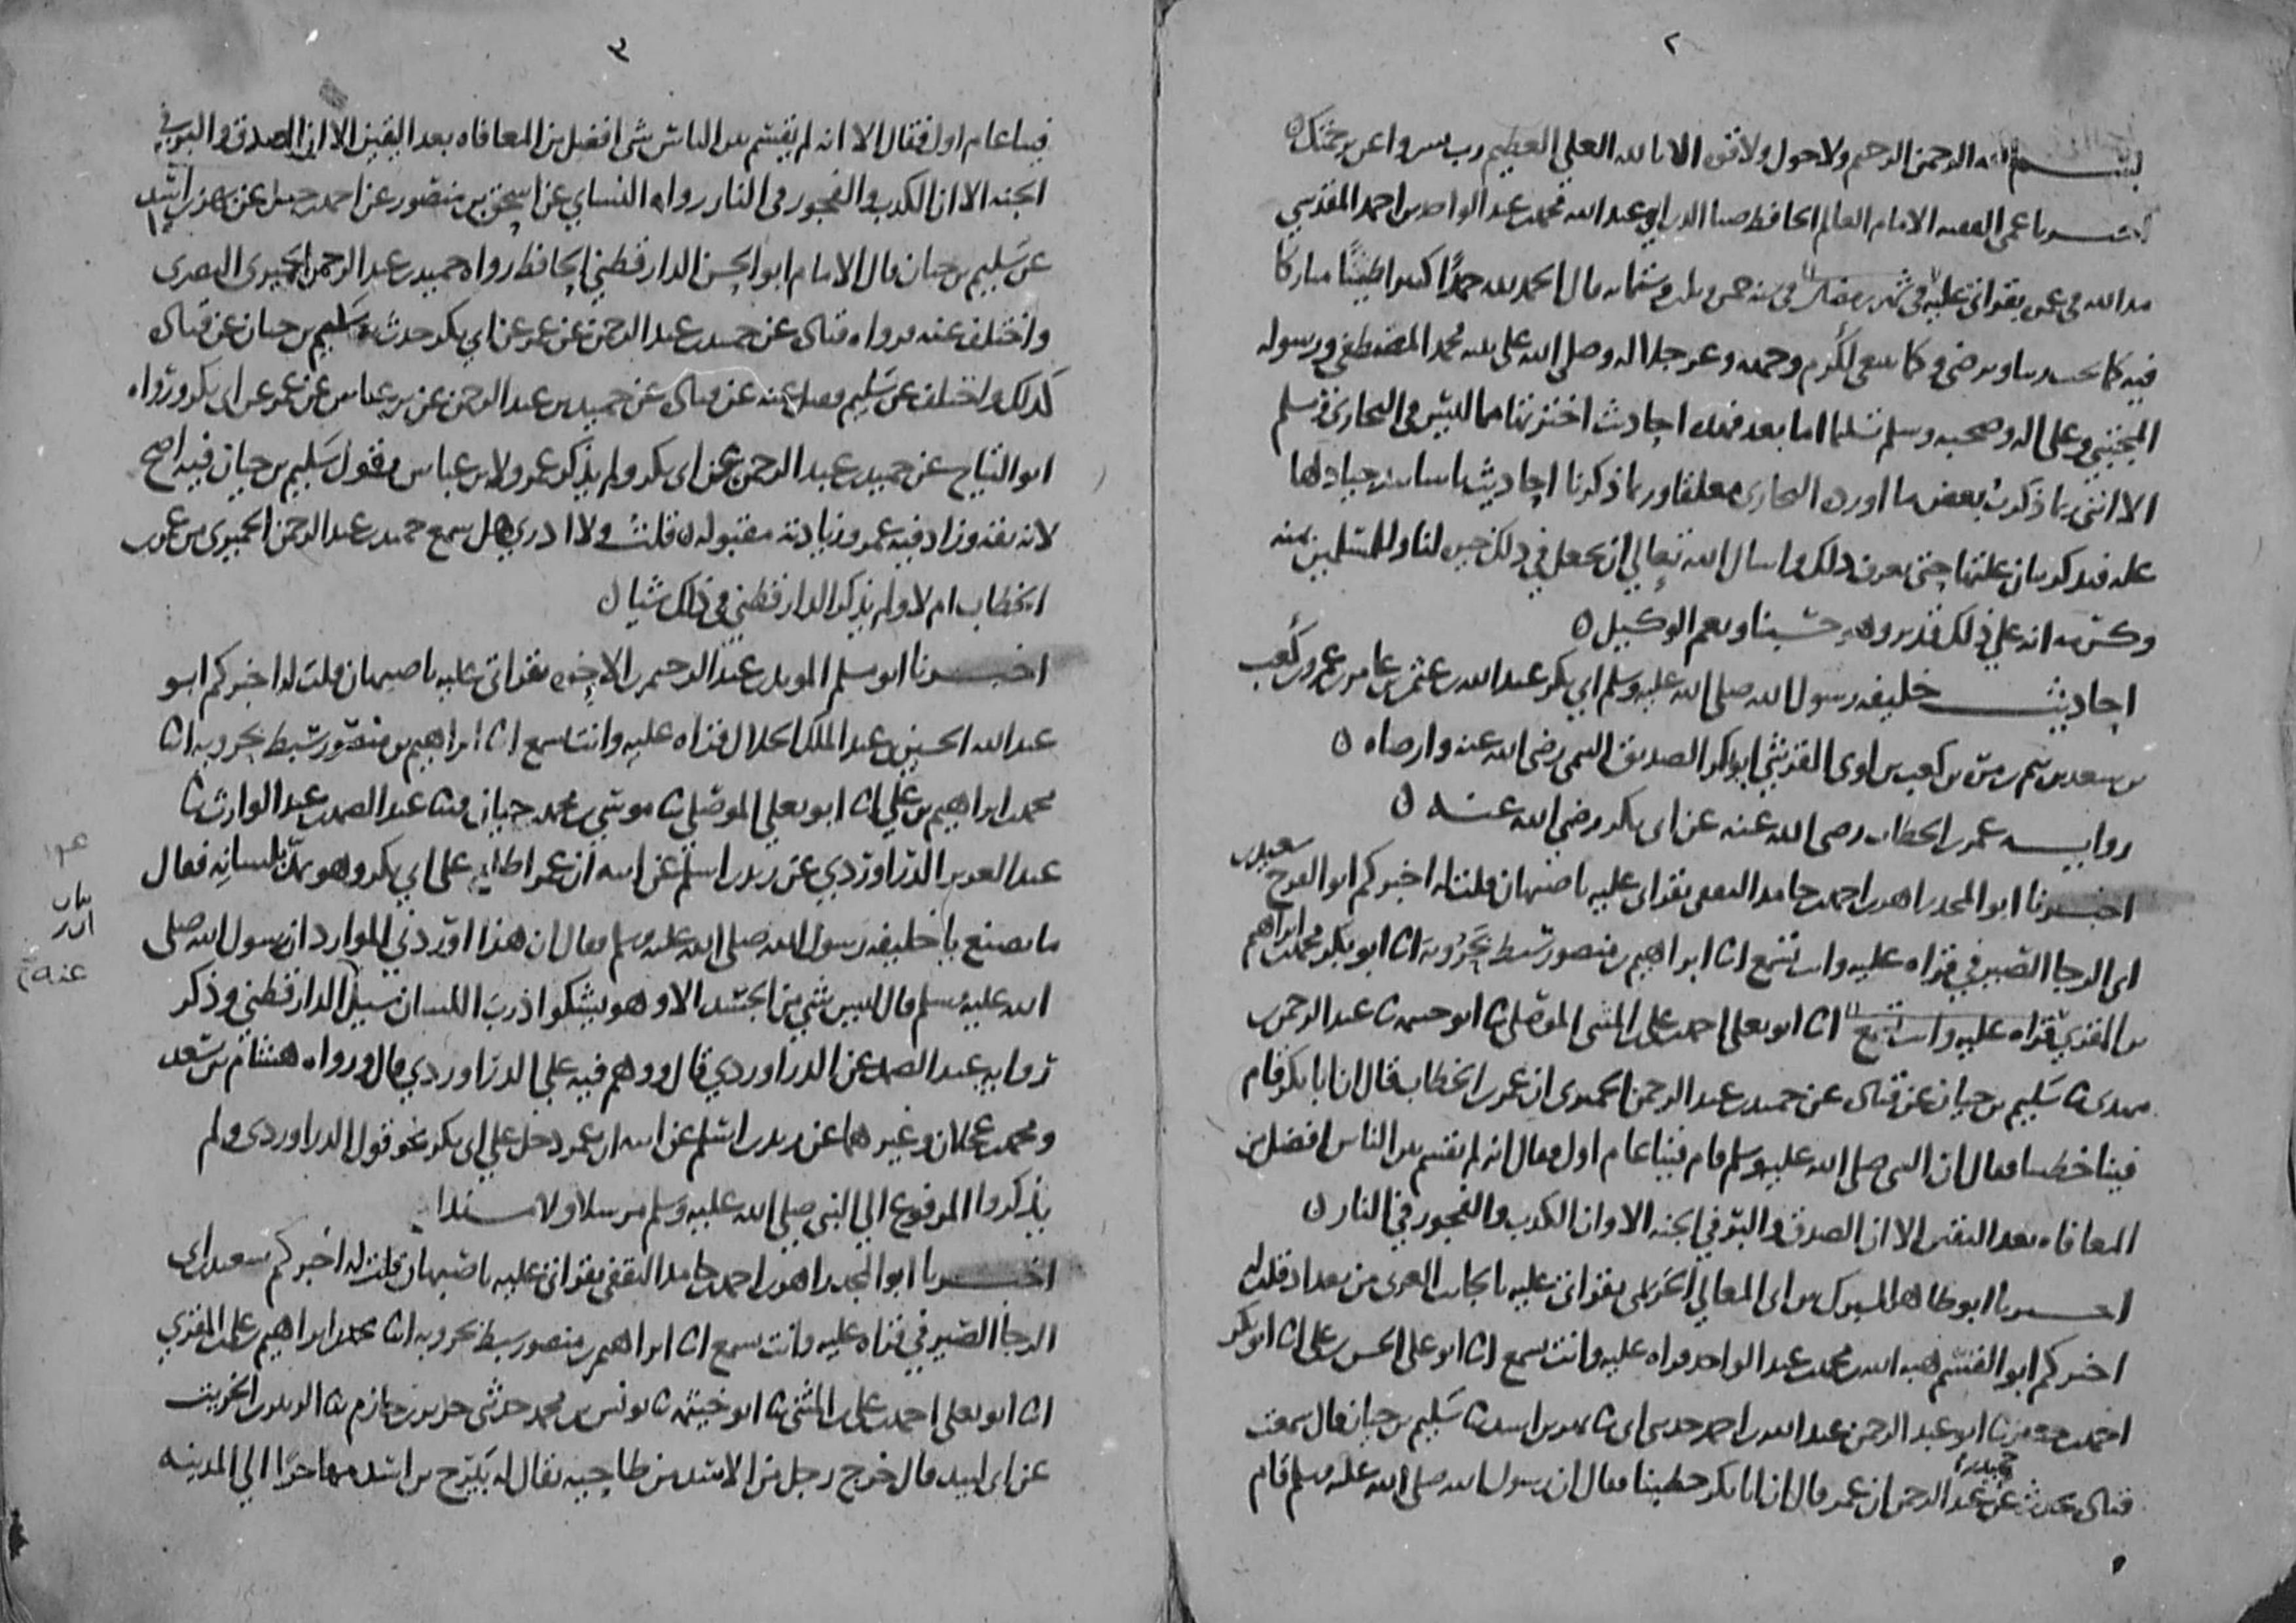 ٢
بسم الله الرحمن الرحيم ولا حول ولا قوه الا بالله العلي العظيم رب يسر واعن برحمتك
اخبرنا عمي الفقيه الامام العالم الحافظ ضيا الدين ابو عبد الله محمد بن عبد الواحد بن احمد المقدسي
مد الله في عمره بقراتي عليه في شهر رمضان في سنه خمس وثلثين وستمايه قال الحمد لله حمدا كثيرا طيبا مباركا
فيه كما يحب ربنا ويرضى وكما ينبغي لكرم وجهه وعز جلاله وصلى الله على نبيه محمد المصطفى ورسوله
المجتبى وعلى اله وصحبه وسلم تسليما اما بعد فهذه احاديث اخترتها مما ليس في البخاري ومسلم
الا انني ربما ذكرت بعض ما اورده البخاري معلقا وربما ذكرنا احاديث باسانيد جياد لها
عله فنذكر بيان علتها حتى يعرف ذلك واسال الله تعالى ان يجعل في ذلك خيرا لنا وللمسلمين بمنه
وكرمه انه على ذلك قدير وهو حسبنا ونعم الوكيل ٥
احاديث خليفه رسول الله صلى الله عليه وسلم ابي بكر عبد الله بن عثمن بن عامر بن عمرو بن كعب
بن سعد بن تيم بن مره بن كعب بن لوى القرشي ابو بكر الصديق التيمي رضي الله عنه وارضاه ٥
روايه عمر بن الخطاب رضي الله عنه عن ابي بكر رضي الله عنه ٥
اخبرنا ابو المجد زاهر بن احمد بن حامد الثقفي بقراتي عليه باصبهان قلت له اخبركم ابو الفرج سعيد بن
ابي الرجا الصيرفي قراه عليه وانت تسمع انا ابراهيم بن منصور سبط بحرويه انا ابو بكر محمد بن ابراهيم
بن المقري قراه عليه وانت تسمع انا ابو يعلى احمد بن علي بن المثنى الموصلي ثنا ابو خيثمه ثنا عبد الرحمن بن
مهدي ثنا سليم بن حيان عن قتاده عن حميد بن عبد الرحمن الحميري ان عمر بن الخطاب قال ان ابا بكر قام
فينا خطيبا فقال ان النبي صلى الله عليه وسلم قام فينا عام اول فقال انه لم يقسم بين الناس افضل من
المعافاه بعد اليقين الا ان الصدق والبر في الجنه الا وان الكذب والفجور في النار ٥
اخبرنا ابو طاهر المبرك بن ابي المعالي الحريمي بقراتي عليه بالجانب الغربي من بغداد قلت له
اخبركم ابو القسم هبه الله بن محمد بن عبد الواحد قراه عليه وانت تسمع انا ابو علي الحسن بن علي انا ابو بكر
احمد بن جعفر ثنا ابو عبد الرحمن عبد الله بن احمد حدثني ابي ثنا بهز بن اسد ثنا سليم بن حيان قال سمعت
قتاده يحدث عن حميد بن عبد الرحمن ان عمر قال ان ابا بكر خطبنا فقال ان رسول الله صلى الله عليه وسلم قام
٣
فينا عام اول فقال الا انه لم يقسم بين الناس شي افضل من المعافاه بعد اليقين الا ان الصدق والبر في
الجنه الا ان الكذب والفجور في النار رواه النساي عن اسحق بن منصور عن احمد بن حنبل عن بهز بن اسد
عن سليم بن حيان قال الامام ابو الحسن الدارقطني الحافظ رواه حميد بن عبد الرحمن الحميري البصري
واختلف عنه فرواه قتاده عن حميد بن عبد الرحمن عن عمر عن ابي بكر حدث به سليم بن حيان عن قتاده
كذلك واختلف عن سليم فقيل عنه عن قتاده عن حميد بن عبد الرحمن عن بن عباس عن عمر عن ابي بكر ورواه
ابو التياح عن حميد بن عبد الرحمن عن ابي بكر ولم يذكر عمر ولا بن عباس وقول سليم بن حيان فيه اصح
لانه ثقه وزاد فيه عمر وزيادته مقبوله ٥ قلت ولا ادري هل سمع حميد بن عبد الرحمن الحميري من عمر بن
الخطاب ام لا ولم يذكر الدارقطني في ذلك شيا ٥
اخبرنا ابو مسلم المويد بن عبد الرحيم بن الاخوه بقراتي عليه باصبهان قلت له اخبركم ابو
عبد الله الحسين بن عبد الملك الخلال قراه عليه وانت تسمع انا ابراهيم بن منصور سبط بحرويه انا
محمد بن ابراهيم بن علي انا ابو يعلى الموصلي ثنا موسى بن محمد بن حيان ثنا عبد الصمد بن عبد الوارث ثنا
عبد العزيز الدراوردي عن زيد بن اسلم عن ابيه ان عمر اطلع على ابي بكر وهو يمد لسانه فقال
ما تصنع يا خليفه رسول الله صلى الله عليه وسلم فقال ان هذا اوردني الموارد ان رسول الله صلى
الله عليه وسلم قال ليس شي من الجسد الا وهو يشكوا ذرب اللسان سيل الدارقطني وذكر
روايه عبد الصمد عن الدراوردي قال ووهم فيه على الدراوردي قال ورواه هشام بن سعد
ومحمد بن عجلان وغيرهما عن زيد بن اسلم عن ابيه ان عمر دخل على ابي بكر نحو قول الدراوردي ولم
يذكروا المرفوع الى النبي صلى الله عليه وسلم مرسلا ولا مسندا
اخبرنا ابو المجد زاهر بن احمد بن حامد الثقفي بقراتي عليه باصبهان قلت له اخبركم سعيد بن ابي
الرجا الصيرفي قراه عليه وانت تسمع انا ابراهيم بن منصور سبط بحرويه انا محمد بن ابراهيم بن علي بن المقري
انا ابو يعلى احمد بن علي بن المثنى ثنا ابو خيثمه ثنا يونس بن محمد حدثني جرير بن حازم ثنا الزبير بن الخريت
عن ابي لبيد قال خرج رجل من الاسد من طاحيه يقال له بيرح بن اسد مهاجرا الى المدينه